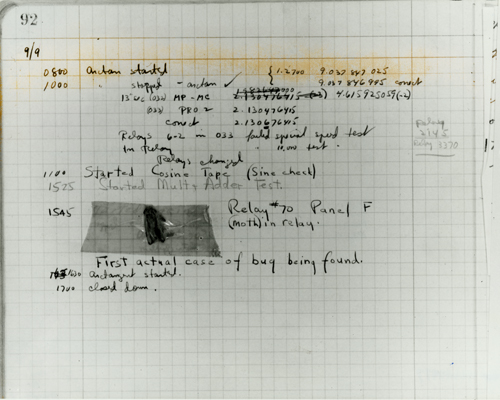 92
9/9
0800 Antan started { 1.2700 9.037 847 025
1000 " stopped - antan ✓ 9.037 846 995 correct
13"uc (032) MP - MC 2.130476415 (-3) 4.615925059(-2)
(033) PRO 2 2.130476415
correct 2.130676415
Relays 6-2 in 033 failed special speed test
in relay " 10.000 test .
Relay
2145
Relay 3370
Relays changed
1100 Started Cosine Tape (Sine check)
1525 Started Mult+Adder Test.
1545 Relay #70 Panel F
(Moth) in relay.
First actual case of bug being found.
1630 antangent started.
1700 closed down.